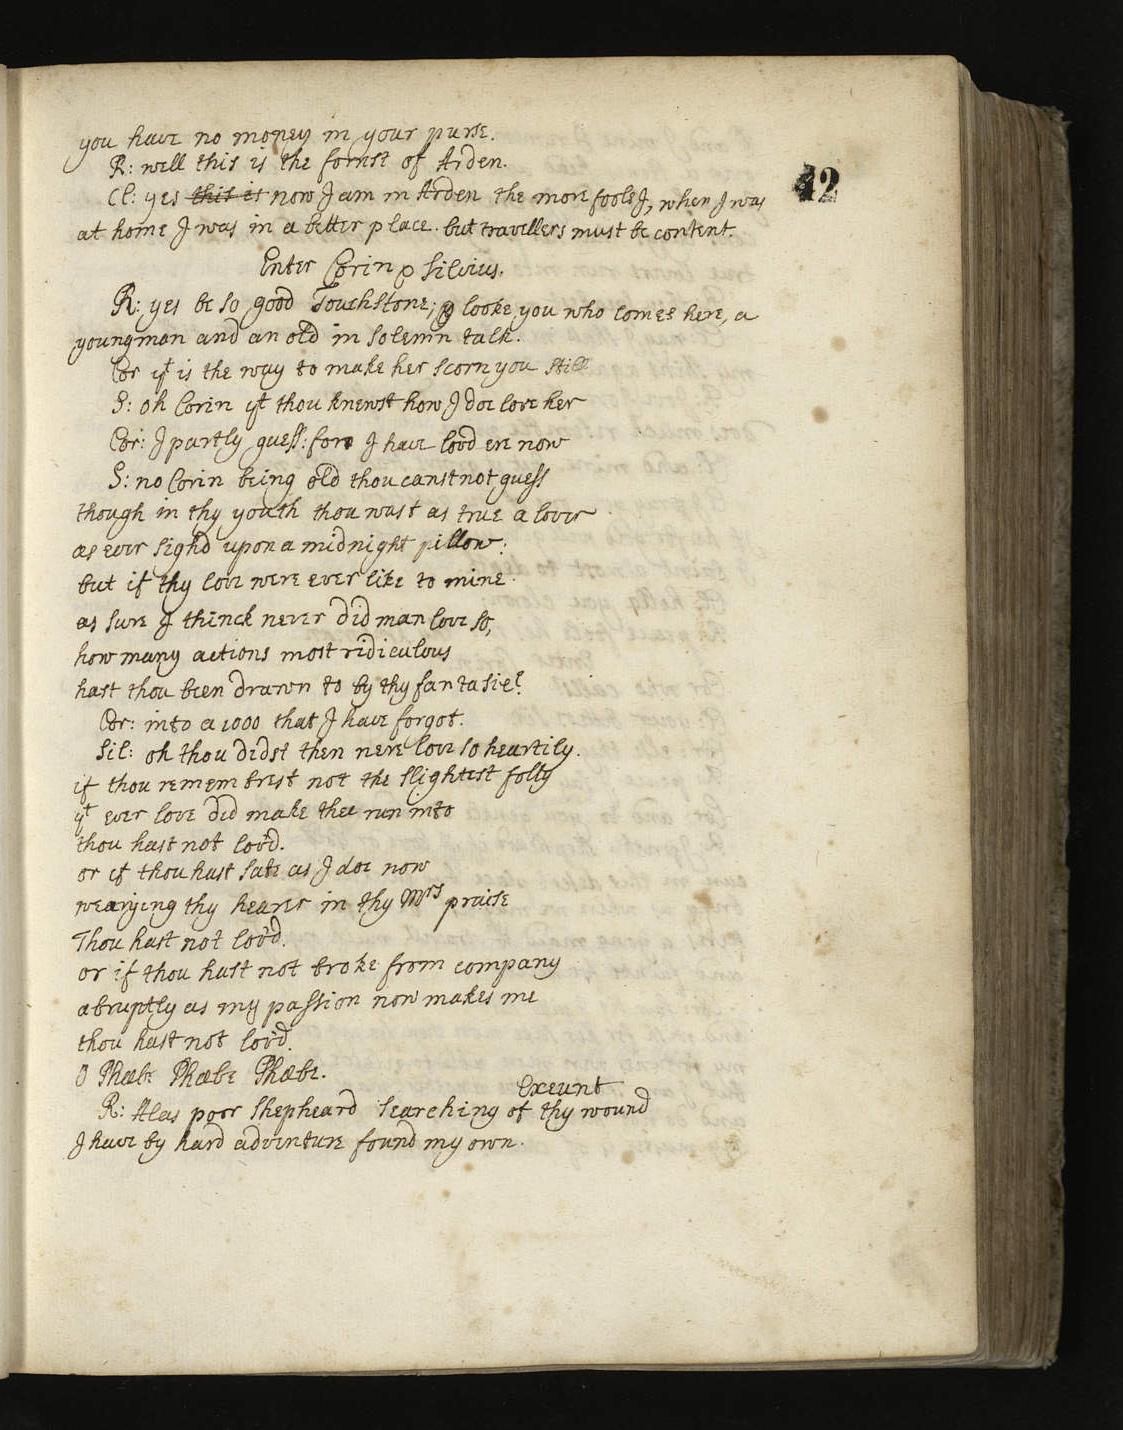 you have no money in your purse.
R: well this is the forrest of Arden.
42
Cl: yes this is now I am in Arden the more foole I, when I was
at home I was in a better place. but travellers must be content.
Enter Corin & Silvius.
R: yes be so good Touchstone; looke you who comes here, a
young man and an old in solemn talk.
Cor yt is the way to make her scorn you still
S: oh Corin yt thou knewst how I doe love her
Cor: I partly guess: for I have lov'd ere now
S: no Corin being old thou canst not guess
though in thy youth thou wast as true a lover
as ever sigh'd upon a midnight pillow:
but if thy love were ever like to mine.
as sure I thinck never did man love so,
how many actions most ridiculous
hast thou been drawn to by thy fantasie?
Cor: into a 1000 that I have forgot.
Sil: oh thou didst then nere love so heartily.
if thou remembrest not the slightest folly
yt ever love did make thee run into
thou hast not lov'd.
or if thou hast sate as I doe now
wearying thy hearer in thy Mrs praise
Thou hast not lov'd.
or if thou hast not broke from company
abruptly as my passion now makes me
thou hast not lov'd.
O Phœbe Phœbe Phœbe.
Exeunt
R: Alas poor Shepheard searching of thy wound
I have by hard adventure found my own.